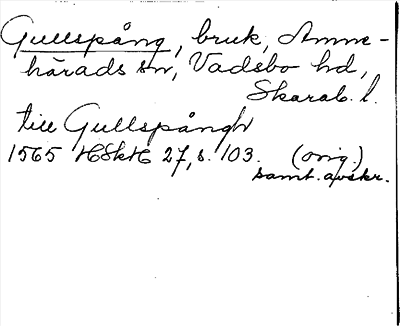 Gullspång, bruk, Amne-
härads sn, Vadsbo hd,
Skarab. l.
till Gullspångh
1565 HSkH 27, s. 103. (orig.)
samt. avskr.